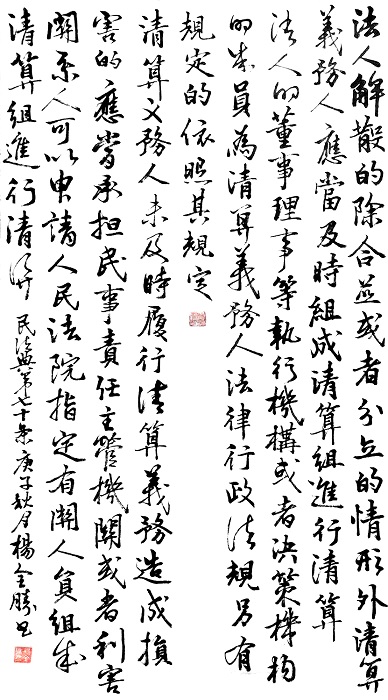 法人解散的除合並或者分立的情形外清算
義務人應當及時組成清算組進行清算
法人的董事理事等執行機構或者決策機构
的成員為清算義務人法律行政法規另有
規定的依照其規定
清算义務人未及時履行清算義務造成損
害的應當承担民事責任主管機關或者利害
關系人可以申請人民法院指定有關人員組成
清算組進行清算 民法典第七十条庚子秋月楊全勝书